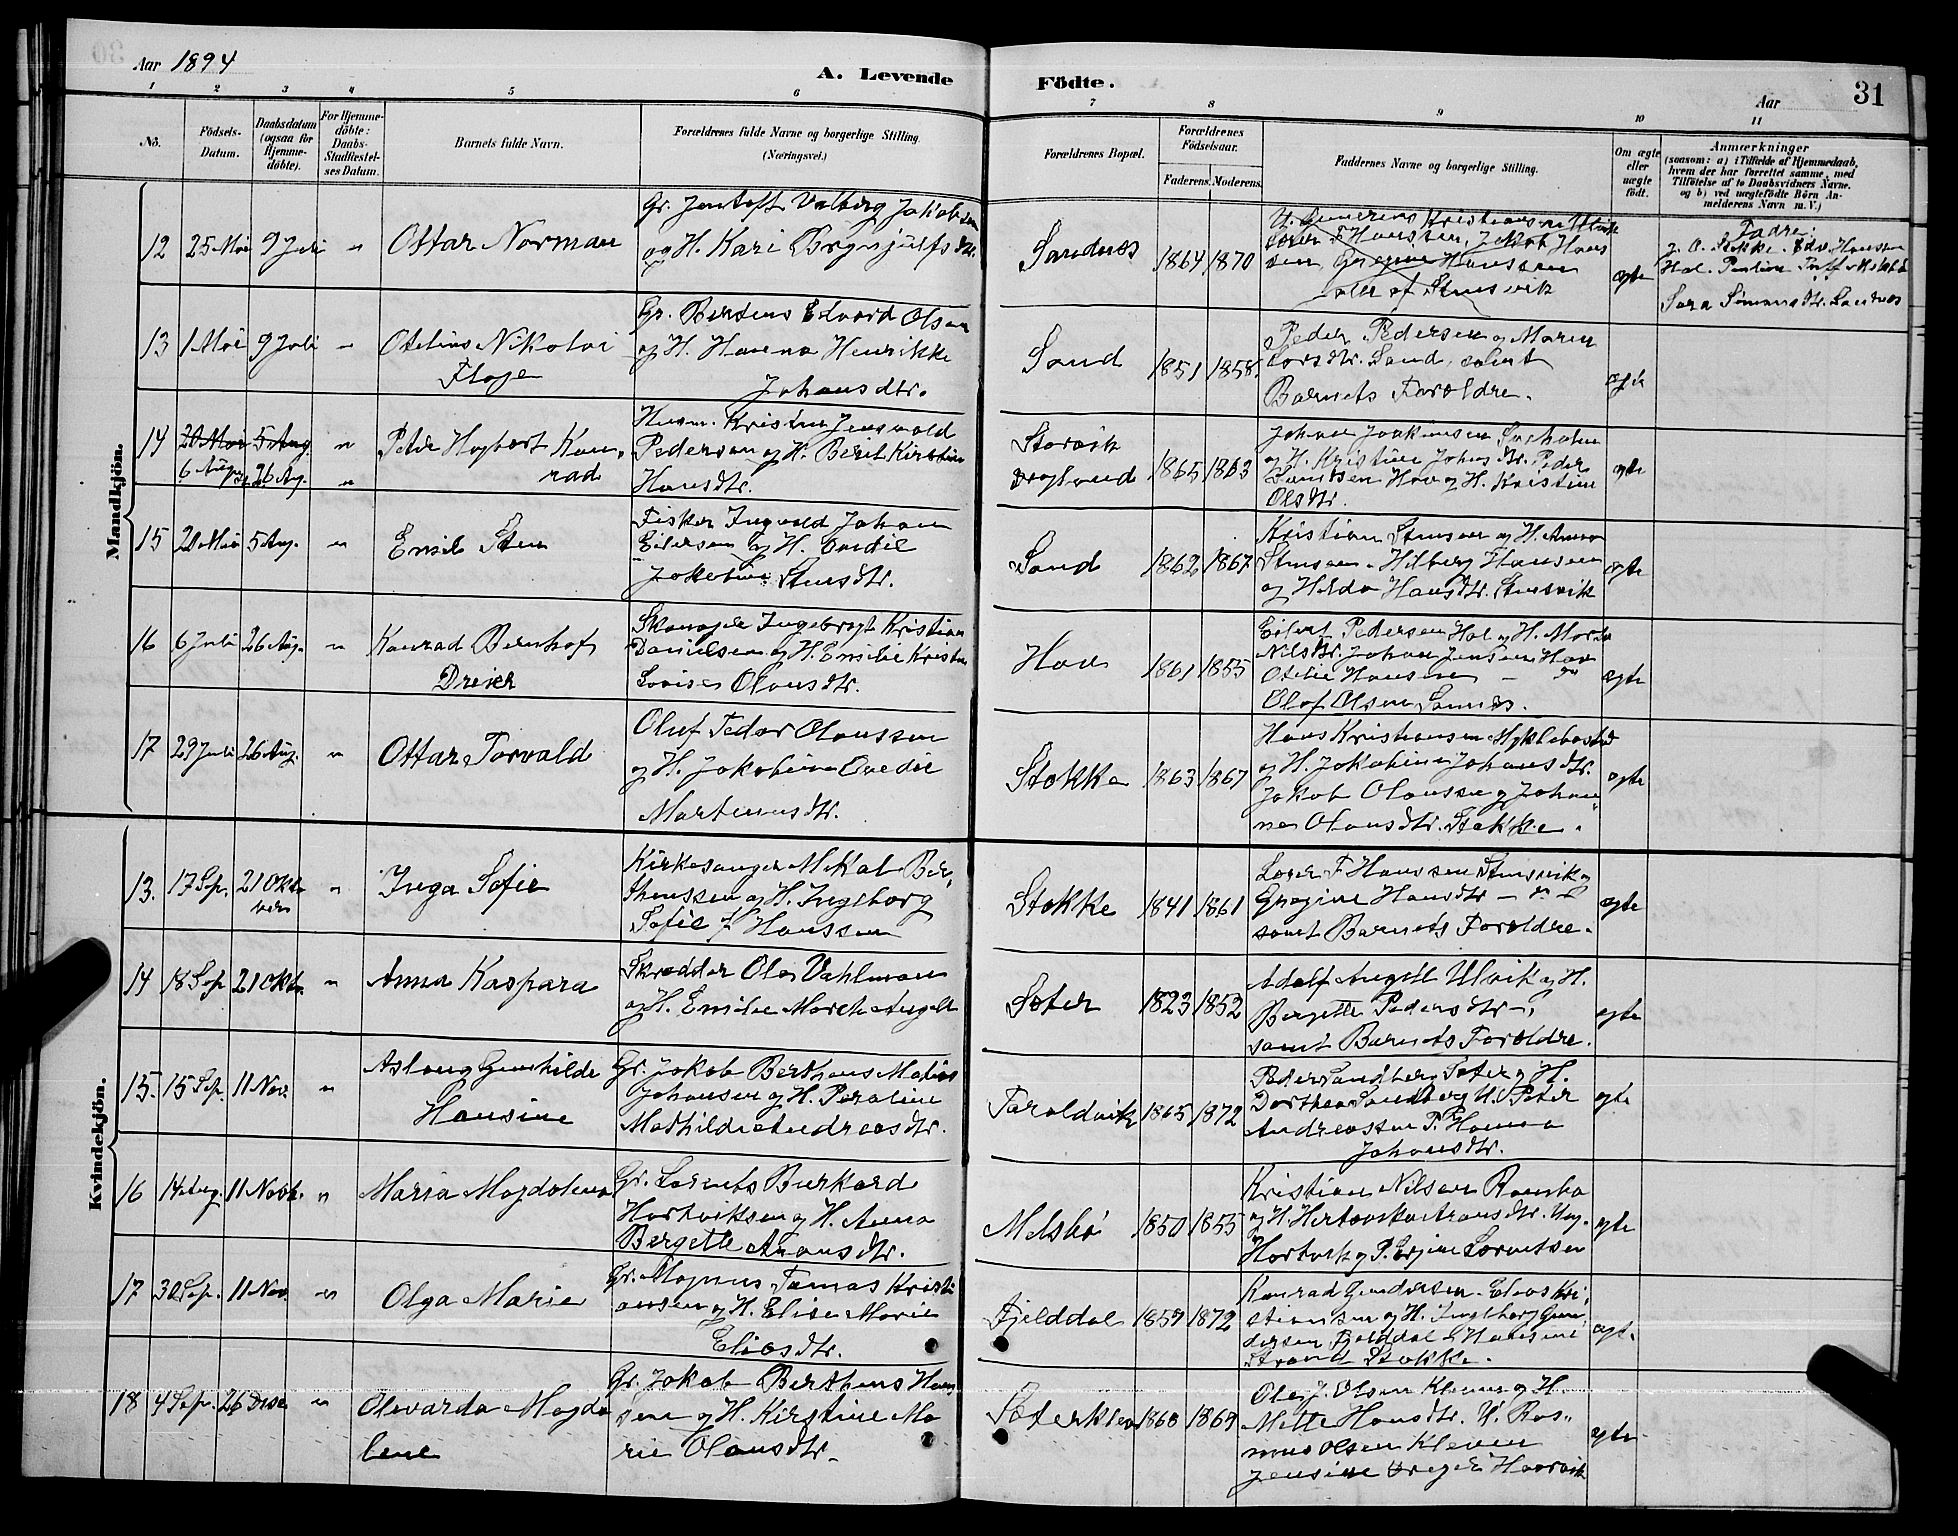 Aar 1894
A. Levende Födte.
Aar
31
1 2 3 4 5 6 7 8 9 10 11
No.
Födsels-Datum.
Daabsdatum (ogsaa for Hjemme-döbte).
For Hjemme-döbte: Daabs-Stadfæstel-ses Datum.
Barnets fulde Navn.
Forældrenes fulde Navne og borgerlige Stilling (Næringsvei.)
Forældrenes Bopæl.
Forældrenes Födselsaar.
Faderens. Moderens.
Faddernes Navne og borgerlige Stilling.
Om ægte eller uægte födt.
Anmærkninger
(saasom: a) i Tilfælde af Hjemmedaab, hvem der har forrettet samme, med Tilföielse af to Daabsvidners Navne. og b) ved uægtefödte Börn An-melderens Navn m. V.)
Mandkjön.
12 25 Mai 9 Juli " Ottar Norman
Gr. Jentoft Valberg Jakobsen
og H. Kari Brynjulfsdtr.
Sandnes 1864 1870
alle af Stensvik
ægte
Fadre:
J. O. Stokke. Edv. Hanssen
Sara Simonsdtr. Sandnes
13 1 Mai 9 Juli " Otelius Nikolai
Floge
Gr. Bertens Edvard Olsen
og H. Hanna Henrikke
Johansdtr.
Sand 1851 1858.
Peder Pedersen og Maren
Larsdtr. Sand, samt
Barnets Foroldre.
ægte
14 20 Mai 5 Aug "
6 26 Aug. "
Peter Hagbart Kon-
rad
Husm. Kristen Jensvold
Pedersen og H. Berit Kirstine
Hansdtr.
Storvik
1865 1863
Johan Joakimsen
og H. Kristine Johansdtr. Peder
Danielsen Hov og H. Kristine
Olsdtr.
ægte
15 20 Mai 5 Aug. " Emil Sten
Fisker Ingvald Johan
Eilersen og H. Ovedie
Jakobine Stensdtr.
Sand 1862 1867
Kristian Stensen og H. Anna
Stensen. Hilberg Hansen
og Helda Hansdtr. Stensvik
ægte
16 6 Juli 26 Aug. " Konrad Bernhof
Dreier
Skomager Ingebrigt Kristian
Danielsen og H. Emilie Kristine
Lovise Olausdtr.
Hov 1861 1855
Eilert Pedersen Hol og H. Marta
Nilsdtr. Johan Jensen Hov
Otelie Hansen — do
Olaf Olsen Sannes.
ægte
17 29 Juli 26 Aug. " Ottar Torvald
Oluf Fedor Olaussen
og H. Jakobine Ovedie
Martinusdtr.
Stokke 1863 1867
Hans Kristiansen Myklebostad
og H. Jakobine Johansdtr.
Jakob Olaussen og Johan-
na Olausdtr. Stokke.
ægte
Kvindekjön.
13. 17 Sep. 21 Okto
ber
" Inga Sofie
Kirkesanger Mikal Ber-
thenssen og H. Ingeborg
Sofie f. Hanssen
Stokke 1841 1861
Loren F Hanssen Stensvik og
Gregine Hansdtr — do
samt Barnets Foroldre.
ægte
14 18 Sep 21 Okt. " Anna Kaspara
Skrædder Ola Vahlman
og H. Emilie March Angell
Soter 1823 1852
Adolf Angell Ulvik og H.
Bergette Pedersdtr —,
samt Barnets Foroldre.
ægte
15. 15 Sep. 11 Nov. " Aslaug Gunhilde
Hansine
Gr. Jakob Bertheus Matias
Johansen og H. Peroline
Mathilde Andreasdtr.
Taroldvik 1865 1872
Peder Sandberg Soter og H.
Dorthea Sandberg U. Peter
Andreassen P. Hanna
Johansdtr.
ægte
16 14 Aug. 11 Novb. " Maria Magdalena
Gr. Lorents Burkard
Hartviksen og H. Anna
Bergette Aronsdtr.
Melsbö 1850 1855
Kristian Nilsen
Hartvik og P. Lorentsen
ægte
17 30 Sep. 11 Nov. " Olga Marie
Gr. Magnus Tomas Kristi-
ansen og H. Elise Marie
Eliasdtr.
Fjelddal 1859 1872
Konrad Gundersen. Elias Kri-
stiansen og H. Ingeborg Gun-
dersen Fjelddal & Hansine
Strand Stokke.
ægte
18 4 Sep. 26 Dese " Olevarda Magda
lene
Gr. Jakob Berthens Han-
sen og H. Kirstine Ma
rie Olausdtr.
1860 1869
Ole J. Olsen Kleven og H.
Mette Hansdtr. U. Ras-
mus Olsen Kleven
Jensine
ægte